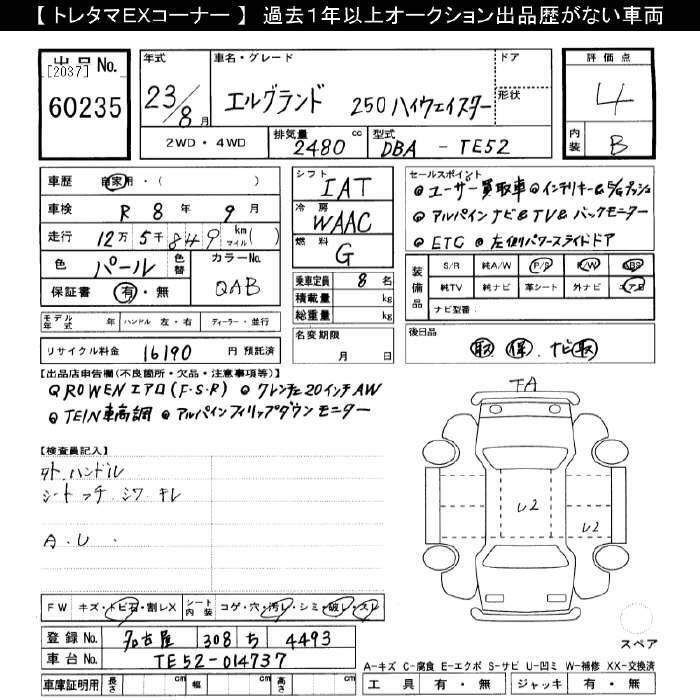 【 トレタマEXコーナー 】 過去1年以上オークション出品歴がない車両
出品 No.
[2037]
60235
年式 23/8月
車名・グレード エルグランド 250 ハイウェイスター
ドア
形状
2WD・4WD
排気量 2480 cc
型式 DBA - TE52
評価点 4
内装 B
車歴 自家用・( )
車検 R 8 年 9 月
走行 12万 5千 849 km マイル( )
色 パール 色替 カラーNo. QAB
保証書 有・無
シフト IAT
冷房 WAAC
燃料 G
乗車定員 8 名
積載量 kg
総重量 kg
セールスポイント
◎ ユーザー買取車 ◎ インテリキー&
◎ アルパイン ナビ&TV& バックモニター
◎ ETC ◎ 左側パワースライドドア
装備品
S/R 純A/W P/S P/W ABS
純TV 純ナビ 革シート 外ナビ エアB
ナビ型番:
モデル年式 年 ハンドル 左・右 ディーラー・並行
リサイクル料金 16190 円 預託済
名変期限
月 日
後日品
取 保 ナビ取
【出品店申告欄(不良箇所・欠品・注意事項等)】
◎ ROWEN エアロ(F・S・R) ◎ クレンチェ 20インチAW
◎ TEIN車高調 ◎ アルパインフィリップダウンモニター
【検査員記入】
外.ハンドル
シート シワ キレ
A・U・
TA
U2
U2
スペア
FW キズ・トビ石・割レX シート内装 コゲ・穴・汚レ・シミ・破レ・スレ
登録No. 名古屋 308 ち 4493
車台No. TE52-014737
車庫証明用 長さ cm 幅 cm 高さ cm
A-キズ C-腐食 E-エクボ S-サビ U-凹ミ W-補修 XX-交換済
工具 有・無 ジャッキ 有・無